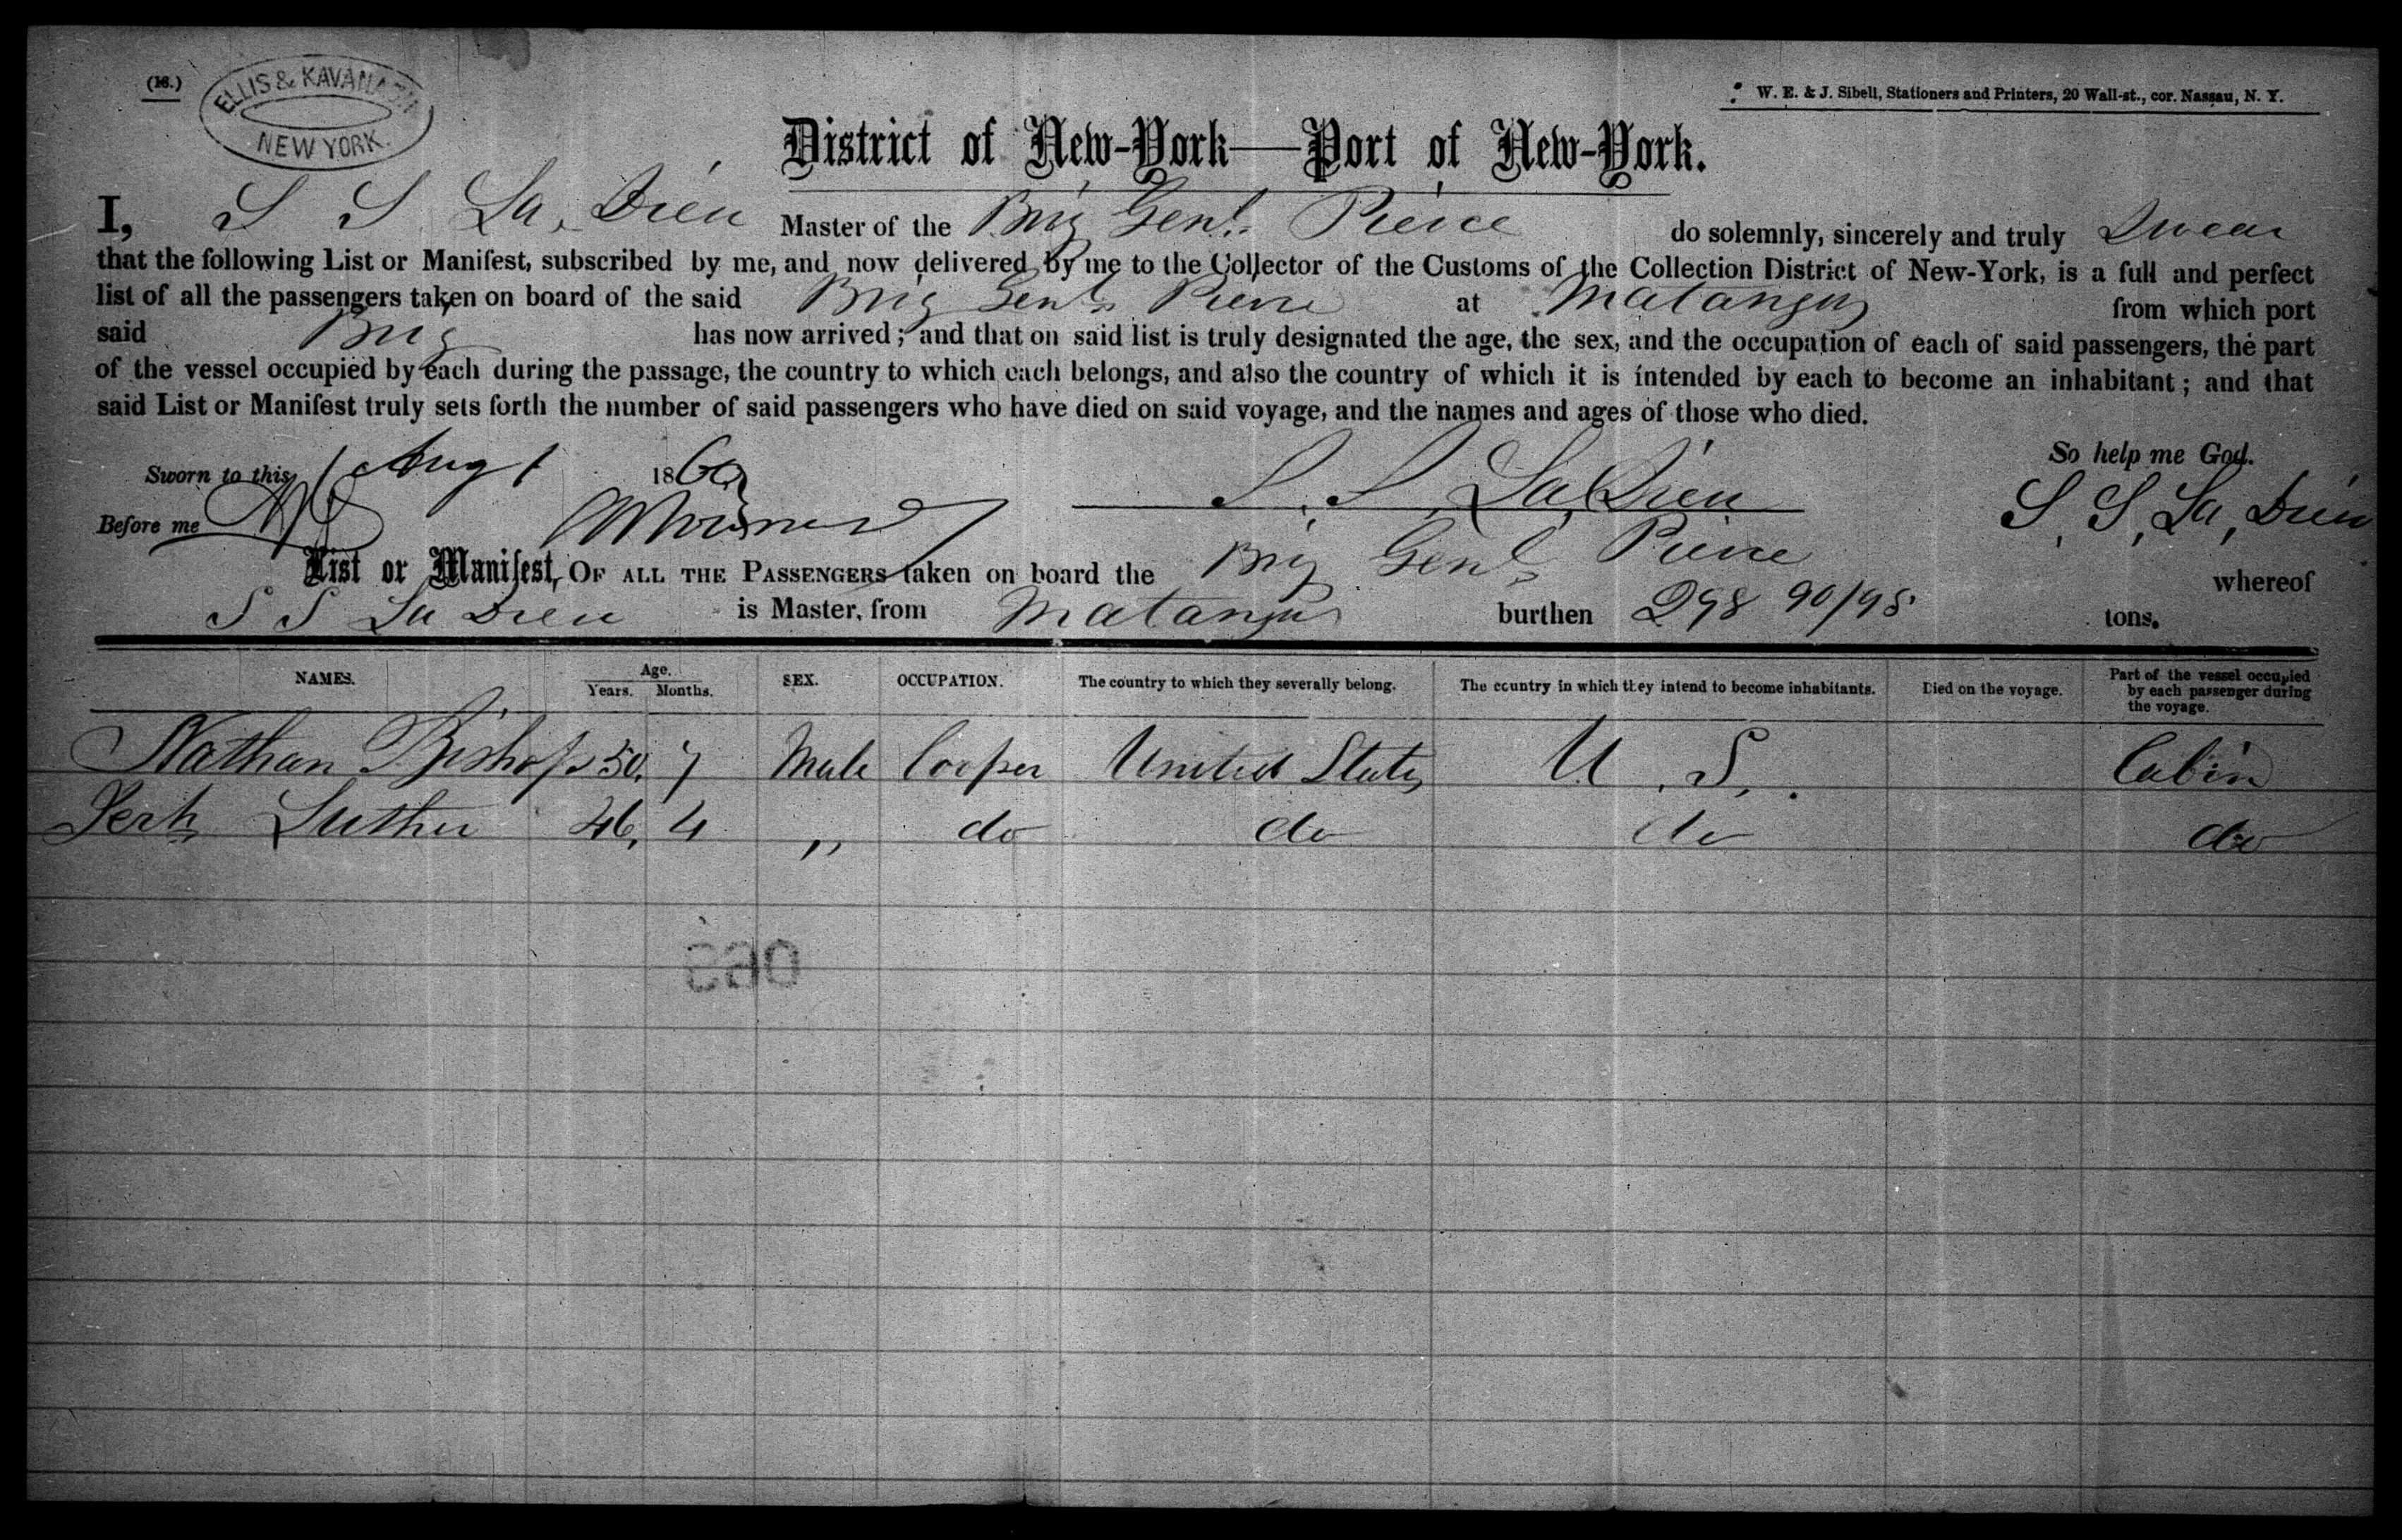 (16.)
ELLIS & KAVANAGH
NEW YORK.
W. E. & J. Sibell, Stationers and Printers, 20 Wall-st., cor. Nassau, N. Y.
District of New-York—Port of New-York.
I, S S La, Drew Master of the Brig Genl. Pierce do solemnly, sincerely and truly Swear
that the following List or Manifest, subscribed by me, and now delivered by me to the Collector of the Customs of the Collection District of New-York, is a full and perfect
list of all the passengers taken on board of the said Brig Genl Pierce at Matanzas from which port
said Brig has now arrived; and that on said list is truly designated the age, the sex, and the occupation of each of said passengers, the part
of the vessel occupied by each during the passage, the country to which each belongs, and also the country of which it is intended by each to become an inhabitant; and that
said List or Manifest truly sets forth the number of said passengers who have died on said voyage, and the names and ages of those who died.
So help me God.
Sworn to this Aug 1 1860 S. S. La, Drew S, S, La, Drew
Before me
List or Manifest, OF ALL THE PASSENGERS taken on board the Brig Genl Pierce whereof
S S La Drew is Master, from Matanzas burthen 298 90/95 tons.
NAMES. Age. Years. Months. SEX. OCCUPATION. The country to which they severally belong. The country in which they intend to become inhabitants. Died on the voyage. Part of the vessel occupied by each passenger during the voyage.
Nathan Bishop 50, 7 Male Cooper United States U. S. Cabin
Luther 46, 4 " do do do do